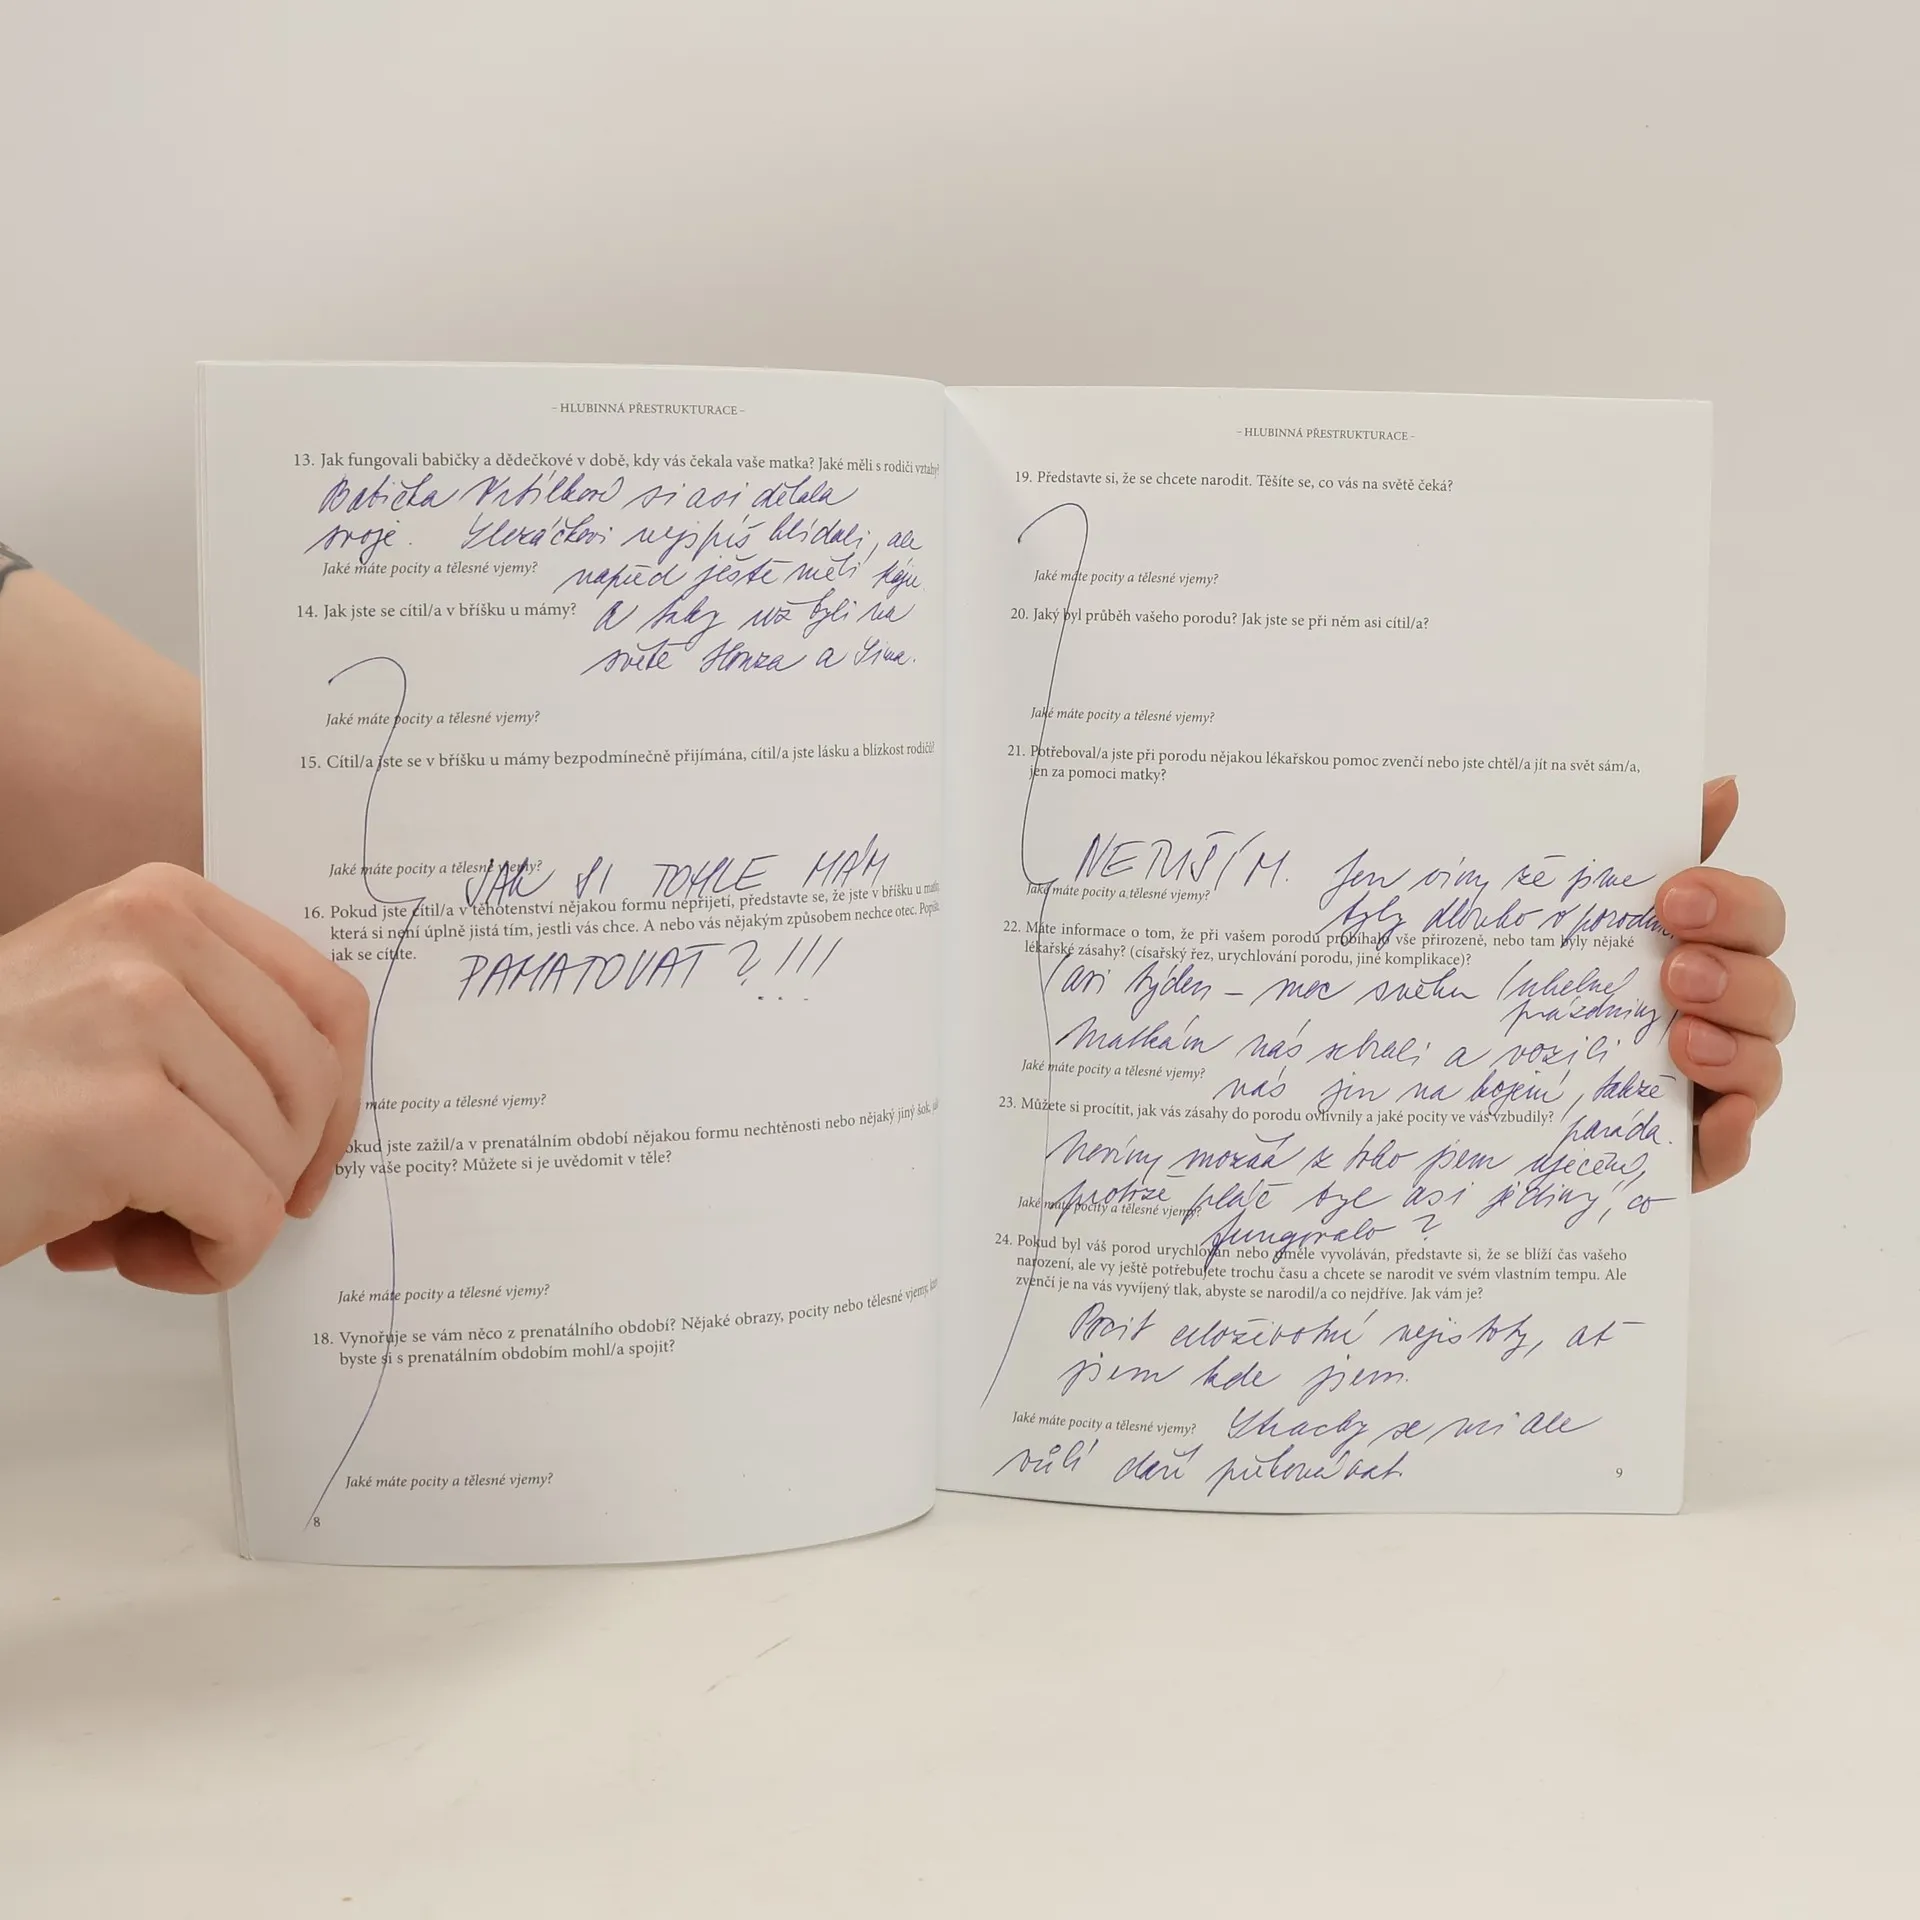 – HLUBINNÁ PŘESTRUKTURACE –
13. Jak fungovali babičky a dědečkové v době, kdy vás čekala vaše matka? Jaké měli s rodiči vztahy?
Babička si asi dělala
svoje. Slezáčkovi nejspíš hlídali, ale
Jaké máte pocity a tělesné vjemy?
napřed ještě měli Káju.
14. Jak jste se cítil/a v bříšku u mámy?
A taky už byli na
světě Honza a
Jaké máte pocity a tělesné vjemy?
15. Cítil/a jste se v bříšku u mámy bezpodmínečně přijímána, cítil/a jste lásku a blízkost rodičů?
Jaké máte pocity a tělesné vjemy?
JAK SI TOHLE MÁM
16. Pokud jste cítil/a v těhotenství nějakou formu nepřijetí, představte se, že jste v bříšku u matky,
která si není úplně jistá tím, jestli vás chce. A nebo vás nějakým způsobem nechce otec. Popište
jak se cítíte.
PAMATOVAT ? !!!
máte pocity a tělesné vjemy?
okud jste zažil/a v prenatálním období nějakou formu nechtěnosti nebo nějaký jiný šok,
byly vaše pocity? Můžete si je uvědomit v těle?
Jaké máte pocity a tělesné vjemy?
18. Vynořuje se vám něco z prenatálního období? Nějaké obrazy, pocity nebo tělesné vjemy,
byste si s prenatálním obdobím mohl/a spojit?
Jaké máte pocity a tělesné vjemy?
8
– HLUBINNÁ PŘESTRUKTURACE –
19. Představte si, že se chcete narodit. Těšíte se, co vás na světě čeká?
Jaké máte pocity a tělesné vjemy?
20. Jaký byl průběh vašeho porodu? Jak jste se při něm asi cítil/a?
Jaké máte pocity a tělesné vjemy?
21. Potřeboval/a jste při porodu nějakou lékařskou pomoc zvenčí nebo jste chtěl/a jít na svět sám/a,
jen za pomoci matky?
NETUŠÍM. Jen vím, že jsme
Jaké máte pocity a tělesné vjemy?
byly dlouho v porodnici
22. Máte informace o tom, že při vašem porodu probíhalo vše přirozeně, nebo tam byly nějaké
lékařské zásahy? (císařský řez, urychlování porodu, jiné komplikace)?
(asi týden – moc sněhu (uhelné
prázdniny)
matkám nás sebrali a vozili
Jaké máte pocity a tělesné vjemy?
nás jen na kojení, takže
23. Můžete si procítit, jak vás zásahy do porodu ovlivnily a jaké pocity ve vás vzbudily?
paráda.
Nevím, možná z toho jsem uječená,
protože pláč byl asi jediný, co
Jaké máte pocity a tělesné vjemy?
fungovalo?
24. Pokud byl váš porod urychlován nebo uměle vyvoláván, představte si, že se blíží čas vašeho
narození, ale vy ještě potřebujete trochu času a chcete se narodit ve svém vlastním tempu. Ale
zvenčí je na vás vyvíjený tlak, abyste se narodil/a co nejdříve. Jak vám je?
Pocit celoživotní nejistoty, ať
jsem kde jsem.
Jaké máte pocity a tělesné vjemy?
Strachy se mi ale
vůlí daří překonávat.
9